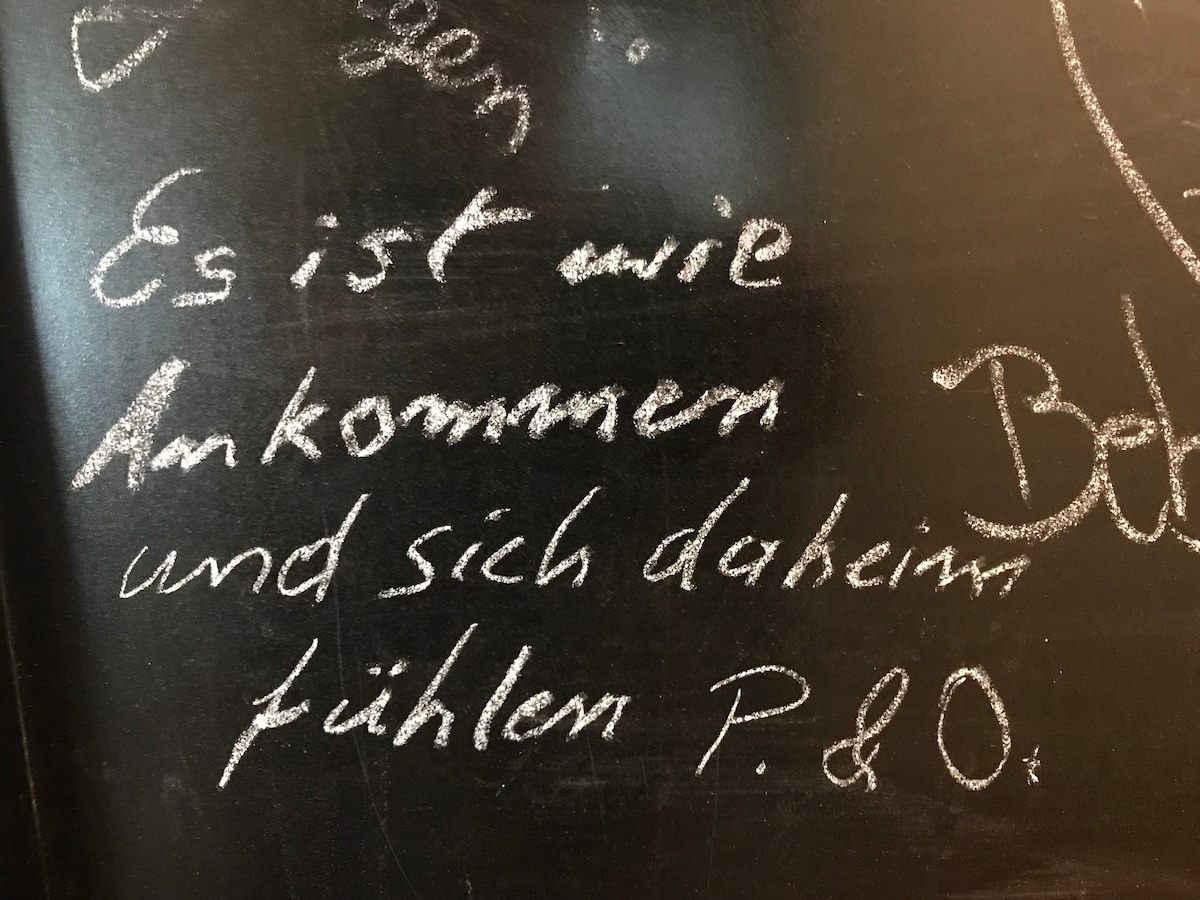 Es ist wie
Ankommen
und sich daheim
fühlen P. & O.